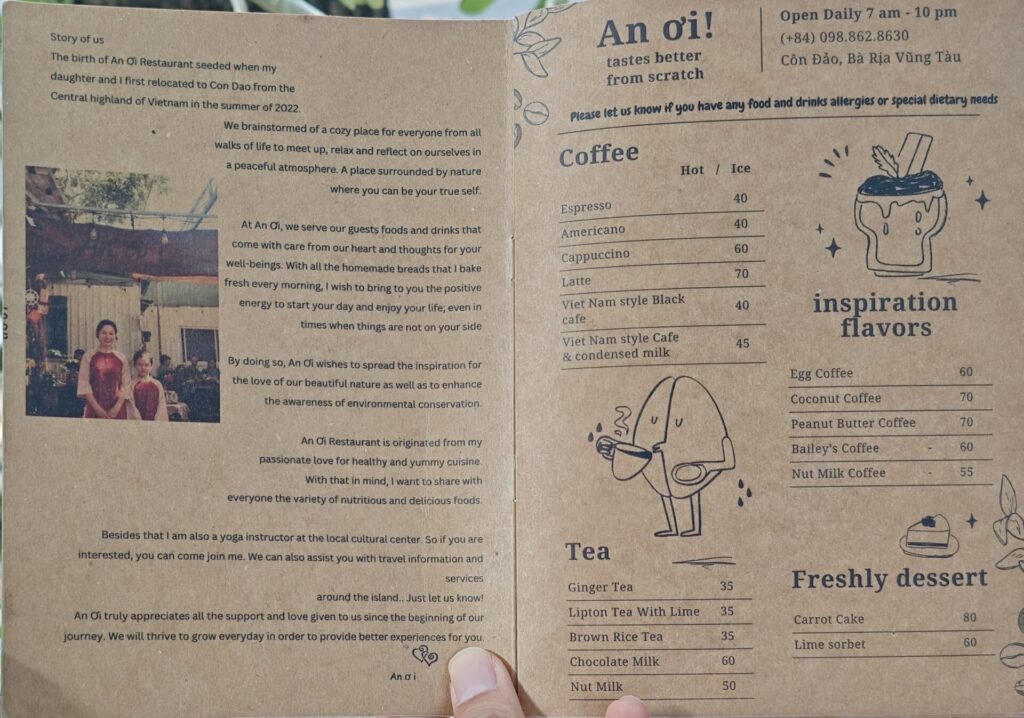 Story of us
The birth of An Ơi Restaurant seeded when my
daughter and I first relocated to Con Dao from the
Central highland of Vietnam in the summer of 2022.
We brainstormed of a cozy place for everyone from all
walks of life to meet up, relax and reflect on ourselves in
a peaceful atmosphere. A place surrounded by nature
where you can be your true self.
At An Ơi, we serve our guests foods and drinks that
come with care from our heart and thoughts for your
well-beings. With all the homemade breads that I bake
fresh every morning, I wish to bring to you the positive
energy to start your day and enjoy your life; even in
times when things are not on your side
By doing so, An Ơi wishes to spread the inspiration for
the love of our beautiful nature as well as to enhance
the awareness of environmental conservation.
An Ơi Restaurant is originated from my
passionate love for healthy and yummy cuisine.
With that in mind, I want to share with
everyone the variety of nutritious and delicious foods.
Besides that I am also a yoga instructor at the local cultural center. So if you are
interested, you can come join me. We can also assist you with travel information and
services
around the island.. Just let us know!
An Ơi truly appreciates all the support and love given to us since the beginning of our
journey. We will thrive to grow everyday in order to provide better experiences for you.
An ơi
An ơi!
tastes better
from scratch
Open Daily 7 am - 10 pm
(+84) 098.862.8630
Côn Đảo, Bà Rịa Vũng Tàu
Please let us know if you have any food and drinks allergies or special dietary needs
Coffee
Hot / Ice
Espresso 40
Americano 40
Cappuccino 60
Latte 70
Viet Nam style Black
cafe 40
Viet Nam style Cafe
& condensed milk 45
Tea
Ginger Tea 35
Lipton Tea With Lime 35
Brown Rice Tea 35
Chocolate Milk 60
Nut Milk 50
inspiration
flavors
Egg Coffee 60
Coconut Coffee 70
Peanut Butter Coffee 70
Bailey's Coffee - 60
Nut Milk Coffee - 55
Freshly dessert
Carrot Cake 80
Lime sorbet 60